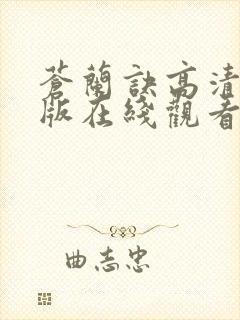 蒼蘭訣高清
版在綫觀看
曲志忠